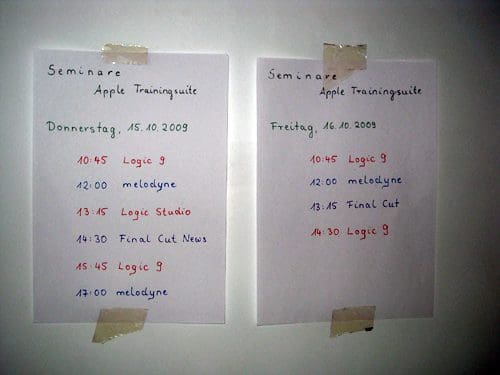 Seminare
Apple Trainingsuite
Donnerstag, 15.10.2009
10:45 Logic 9
12:00 melodyne
13:15 Logic Studio
14:30 Final Cut News
15:45 Logic 9
17:00 melodyne
Seminare
Apple Trainingsuite
Freitag, 16.10.2009
10:45 Logic 9
12:00 melodyne
13:15 Final Cut
14:30 Logic 9